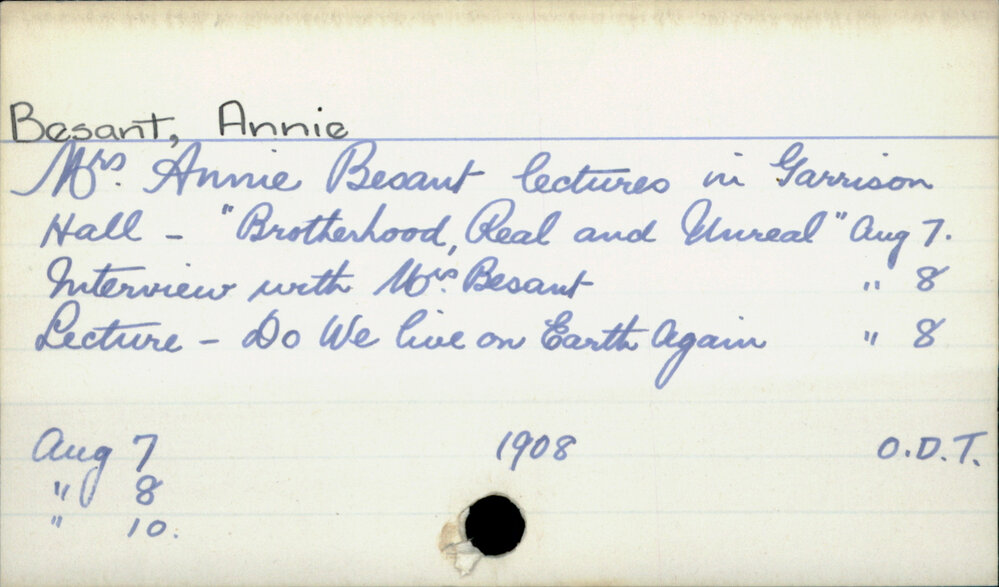 Besant, Annie
Mrs. Annie Besant lectures in Garrison
Hall - "Brotherhood, Real and Unreal" Aug 7.
Interview with Mrs. Besant " 8
Lecture - Do We live on Earth Again " 8
Aug 7 1908 O.D.T.
" 8
" 10.